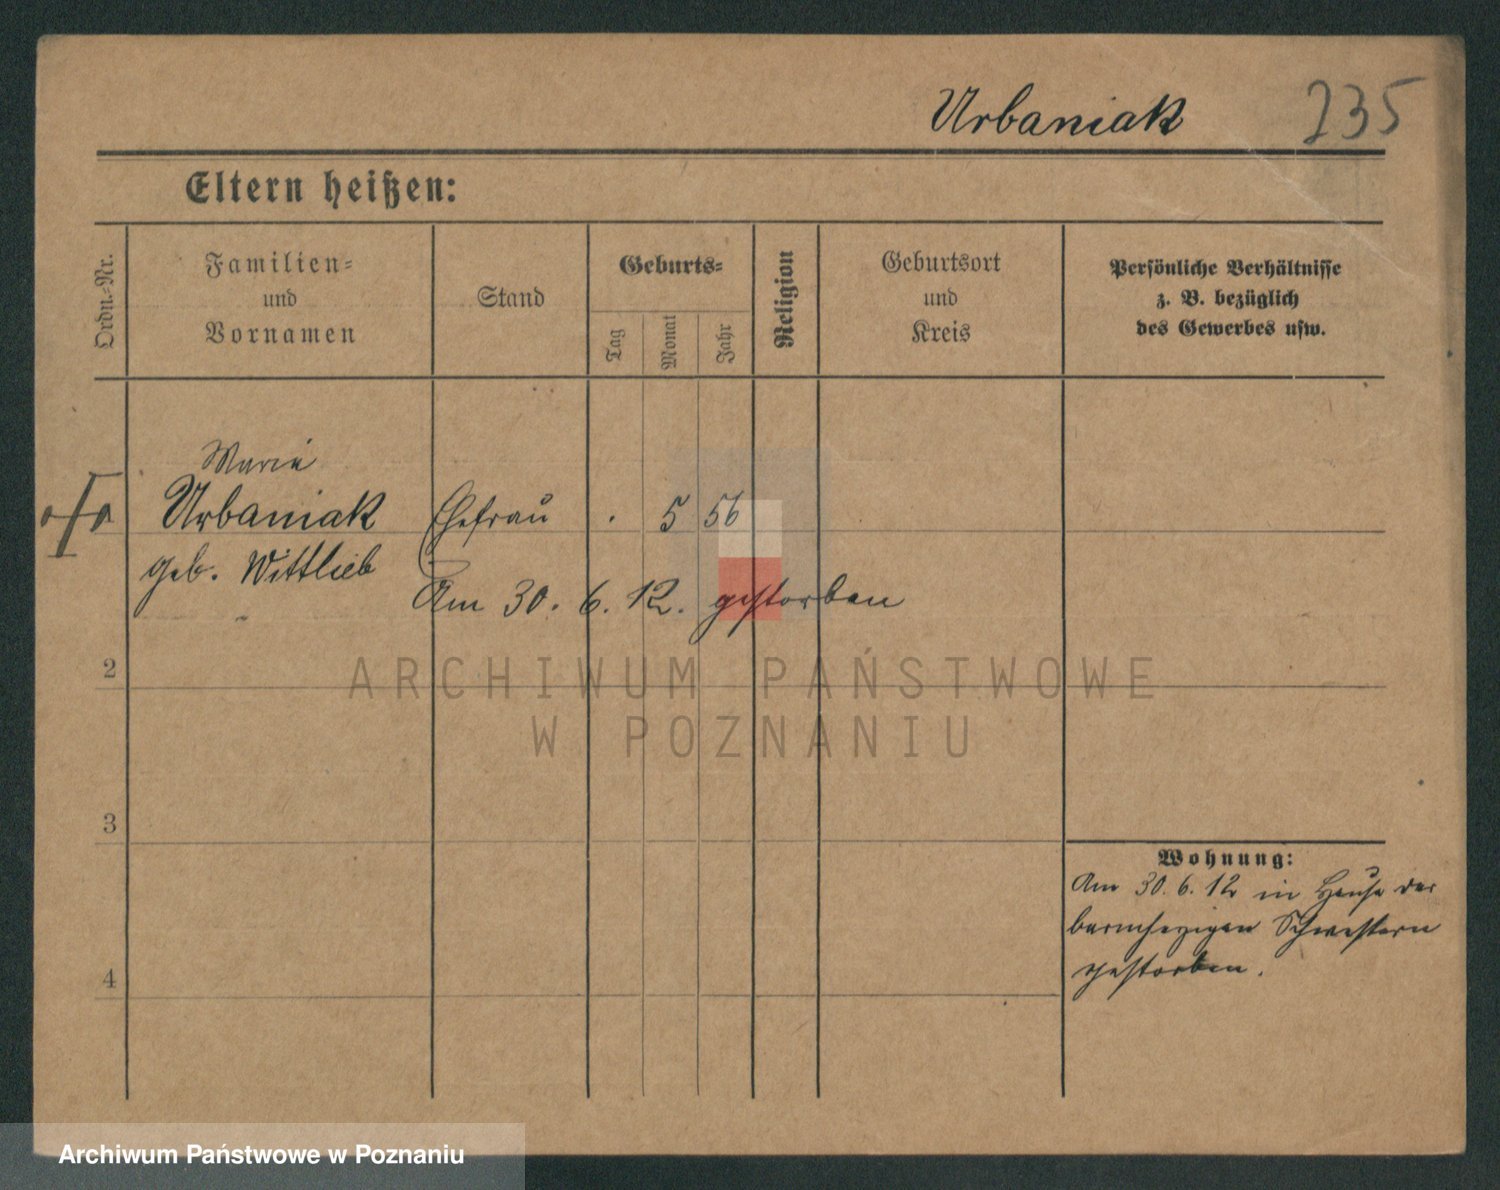 Urbaniak 235
Eltern heißen:
Ordn.-Nr.
Familien-
und
Vornamen
Stand
Geburts-
Tag
Monat
Jahr
Religion
Geburtsort
und
Kreis
Persönliche Verhältnisse
z. B. bezüglich
des Gewerbes usw.
Maria
Urbaniak Ehefrau . 5 56
geb. Wittlieb
Am 30. 6. 12. gestorben
2
3
4
Wohnung:
Am 30. 6. 12 im Hause der
barmherzigen Schwestern
gestorben.
ARCHIWUM PAŃSTWOWE
W POZNANIU
Archiwum Państwowe w Poznaniu